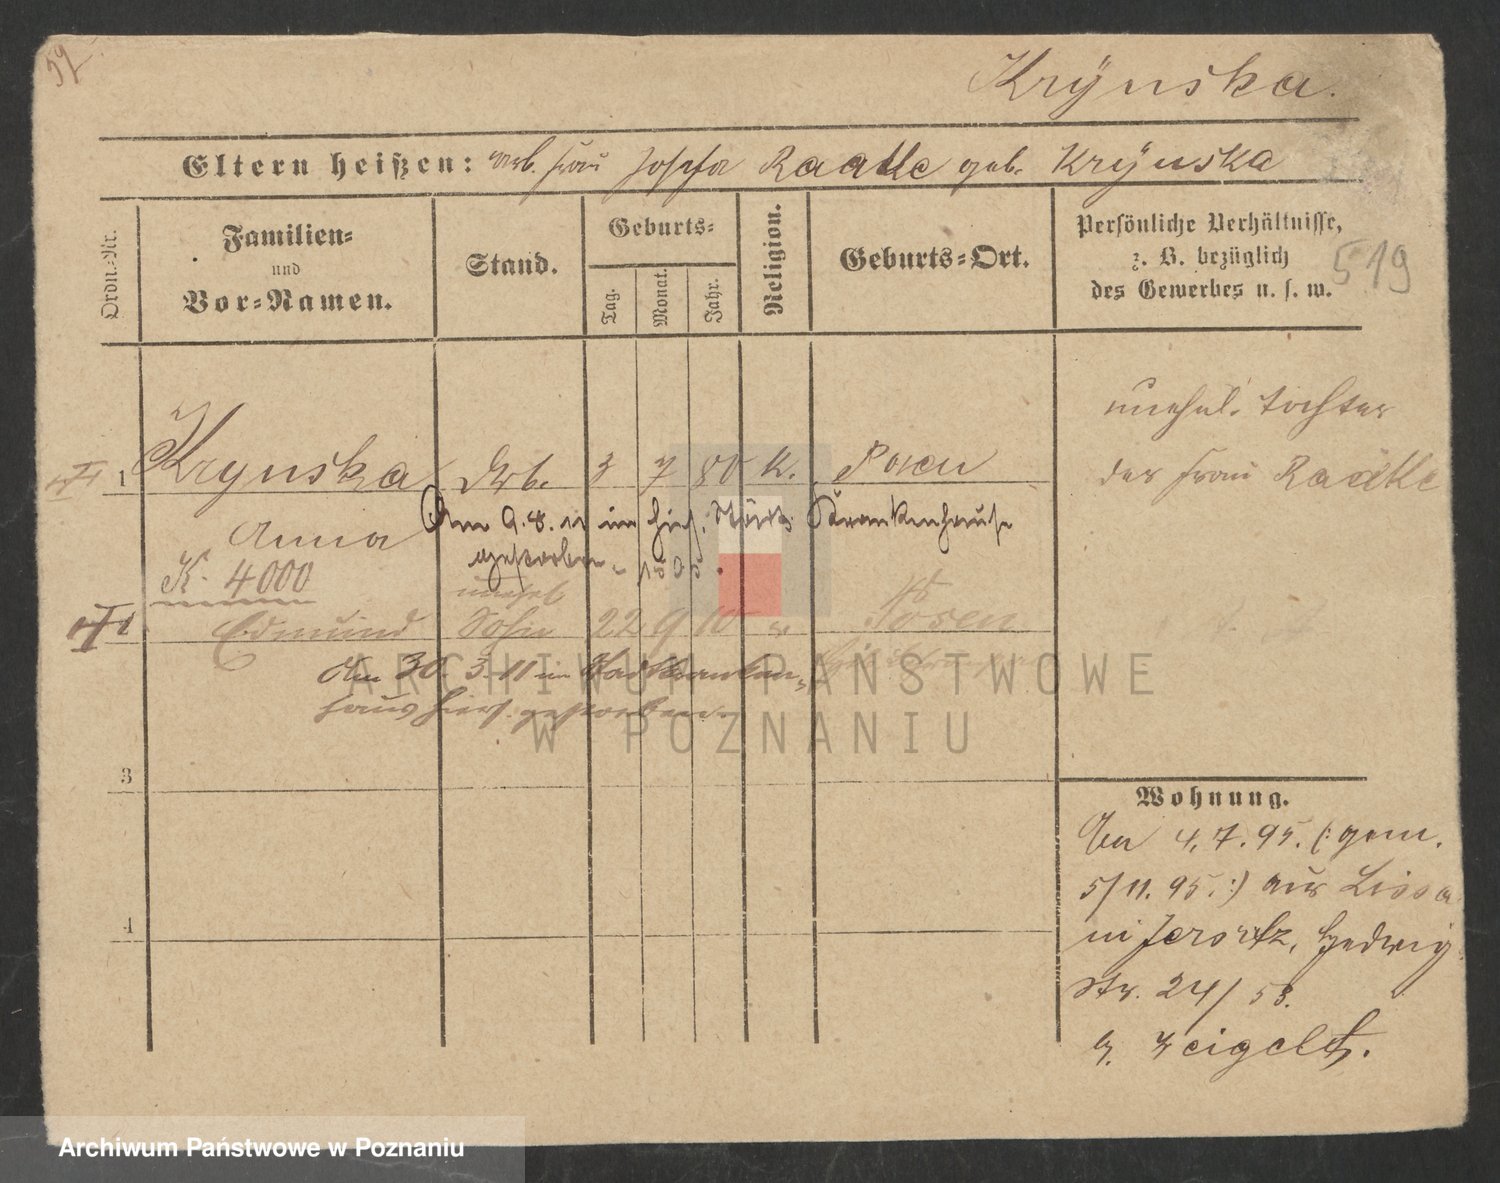 Krÿnska.
Eltern heißen: Arb. Frau Josefa Raatke geb. Krÿnska
Ordn.-Nr.
Familien-
und
Vor-Namen.
Stand.
Geburts-
Tag.
Monat.
Jahr.
Religion.
Geburts-Ort.
Persönliche Verhältnisse,
z. B. bezüglich
des Gewerbes u. s. w.
519
unehel. Tochter
der Frau Raatke
1 Krynska Arb. 3 7 80 K. Posen
Anna
Am 9.8. im hies. Städt. Krankenhause
gestorben.
K. 4000
unehel
2 Edmund Sohn 22 9 10 Posen
Am 30. 3. 11 im Stadtkranken-
haus hies. gestorben.
3
4
Wohnung.
Am 4.7.95. (: gem.
5/11. 95. :) aus Lissa
in Jersitz, Hedwig
Str. 24/53.
b. Weigelt.
ARCHIWUM PAŃSTWOWE
W POZNANIU
Archiwum Państwowe w Poznaniu